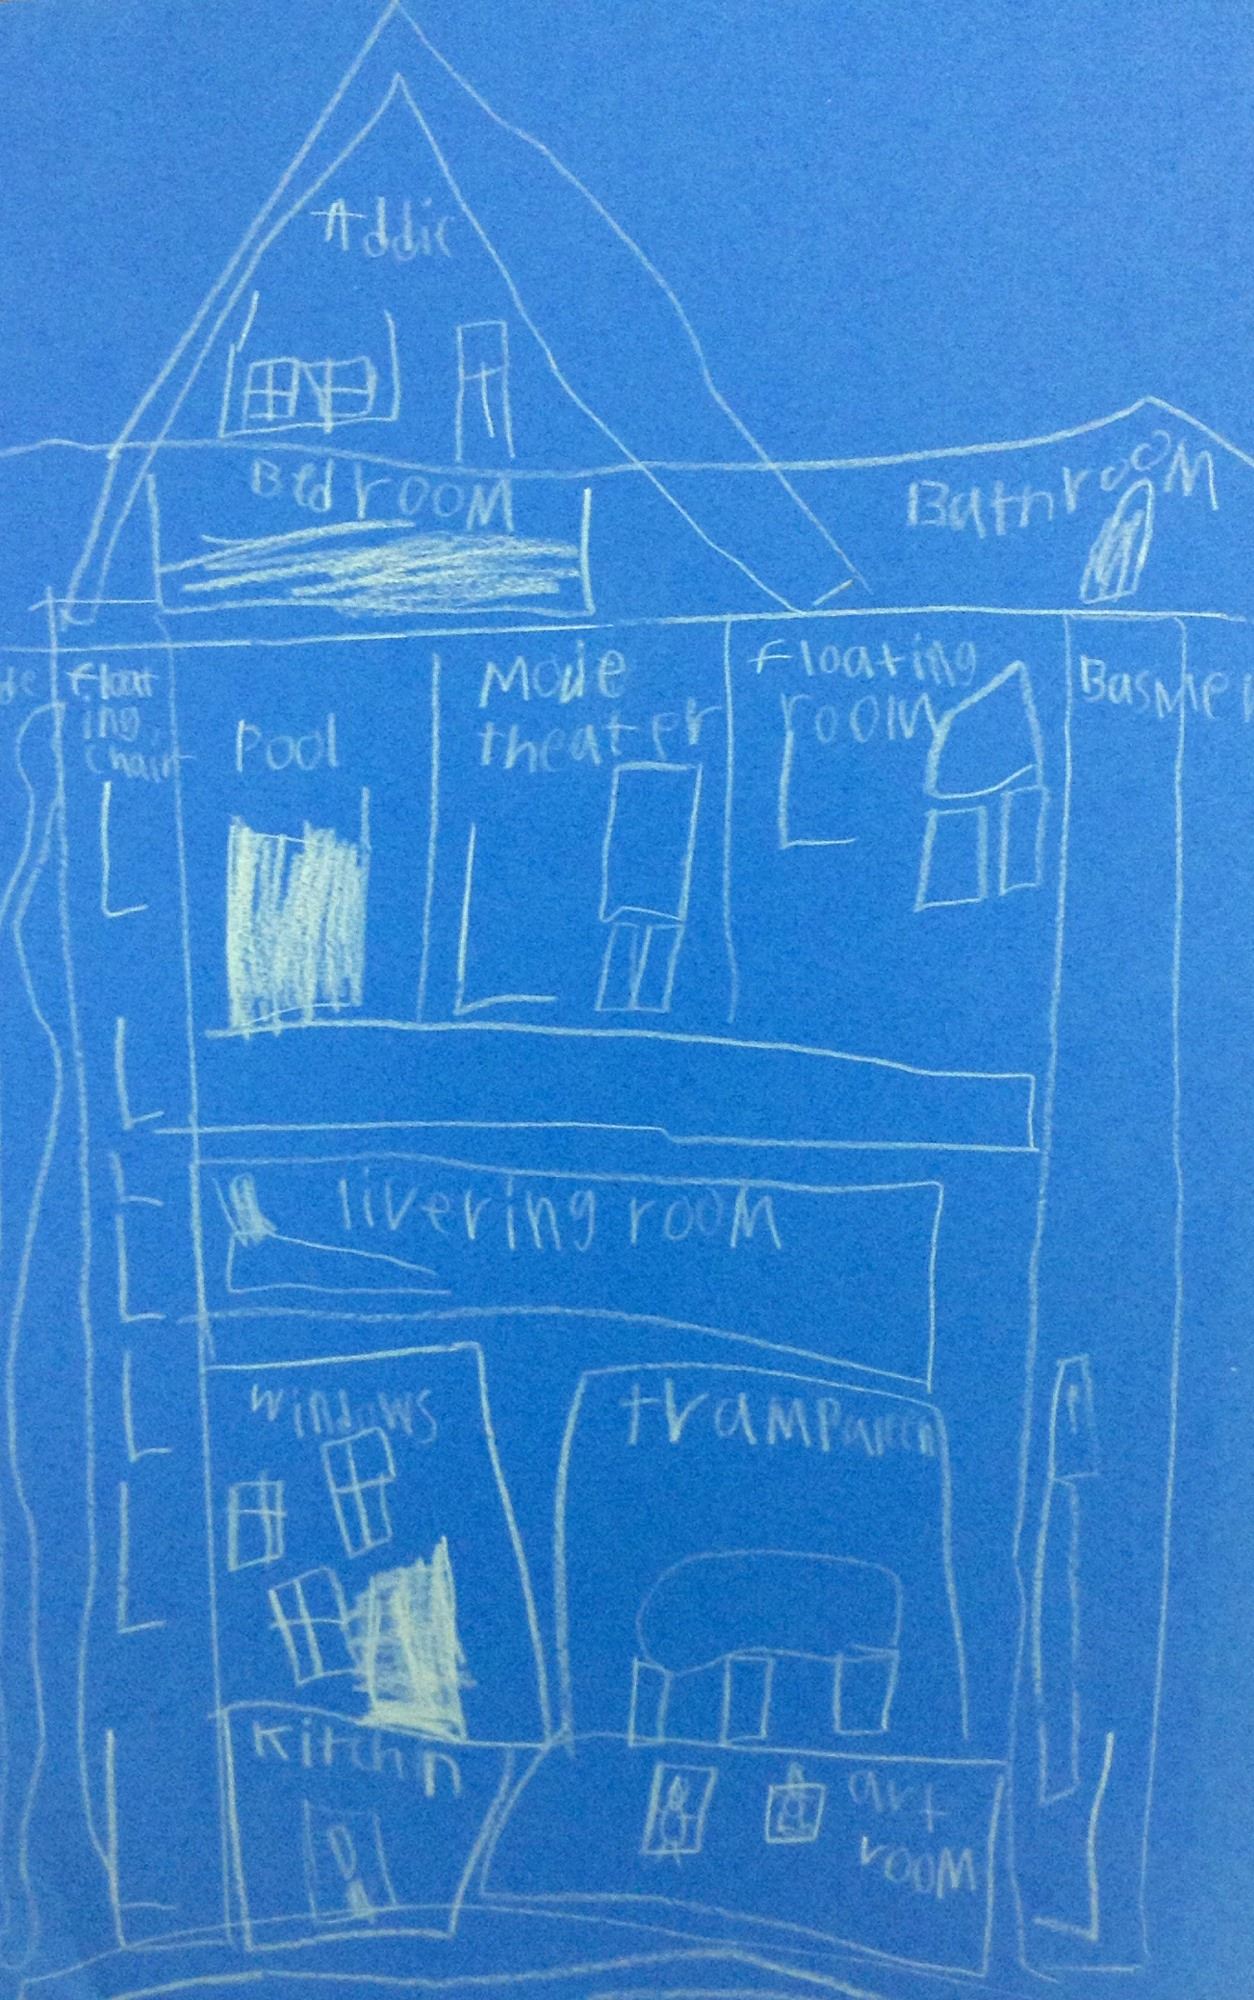 Addic
Bedroom
Bathroom
Float
ing
chair
Pool
Movie
theater
Floating
room
Basmen
livering room
windows
trampareen
Kitchn
art
room